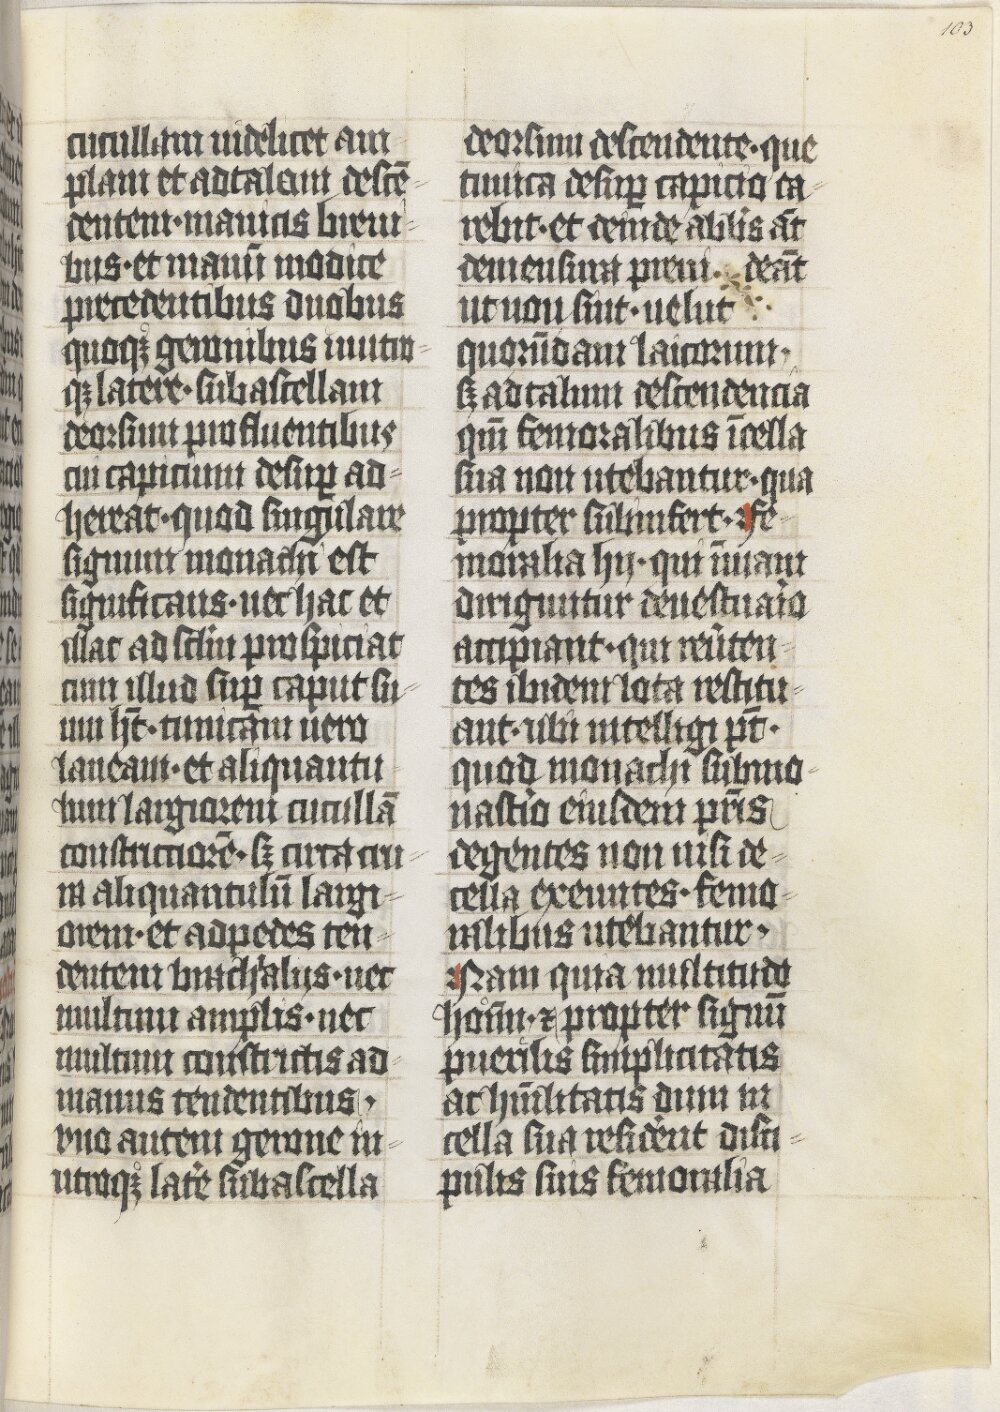 103
cucullam uidelicet am
plam et ad talum descē-
dentem·manicis breui-
bus·et manuū modice
precedentibus duobus
quoqȝ geronibus in utro-
qȝ latere·sub ascellam
deorsum profluentibus
cui capicium desuꝑ ad-
hereat·quod singulare
signum monachi est
significans·nec hac et
illac ad sc̄lm prospiciat
cum illud suꝑ caput su-
um hēt·tunicam uero
laneam·et aliquantu
lum largiorem cucullā
constrictiorē·sȝ circa cru-
ra aliquantulū largi-
orem·et ad pedes ten-
dentem brachialijs·nec
multum amplis·nec
multum constrictis ad-
manus tendentibus·
vno autem gerone in-
utroqȝ latere sub ascella
deorsum descendente·que
tunica desuꝑ capicio ca-
rebit·et deinde
demensura
ut non sint·uelut
quorūdam laicorum·
sȝ ad talum descendencia
qm̄ femoralibus īcella
sua non utebantur·qua
propter subinfert·fe-
moralia hij·qui ī uiam
diriguntur de uestiario
accipiant·qui reūten-
tes ibidem lota restitu-
ant·ubi intelligi pt̄·
quod monachi sub mo-
nastio eiusdem pr̄is
degentes non nisi de-
cella exeuntes·femo-
ralibus utebantur·
Nam quia multitudo
hoīm·⁊ propter signū
puerilis simplicitatis
ac hūilitatis dum in
cella sua resident disci-
pulis suis femoralia